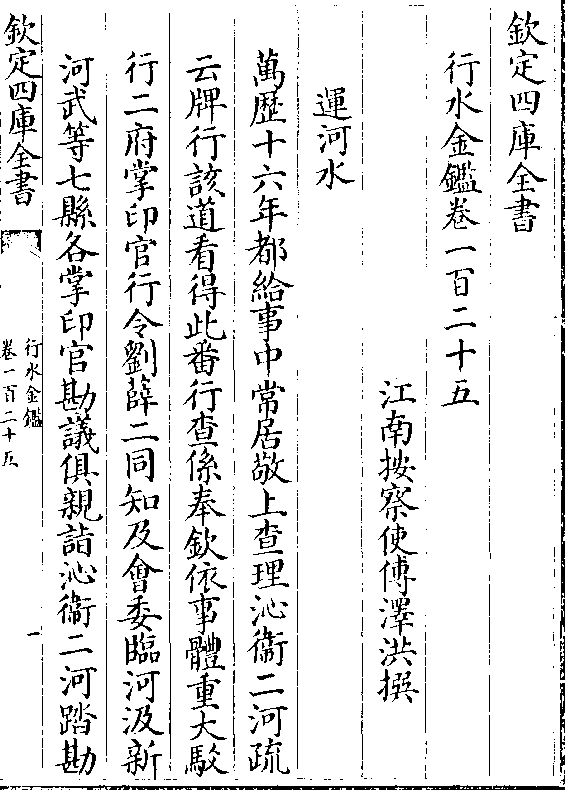 欽定四庫全書
行水金鑑卷一百二十五
江南按察使傅澤洪撰
運河水
萬歷十六年都給事中常居敬上查理沁衞二河疏
云牌行該道看得此番行查係奉欽依事體重大駁
行二府掌印官行令劉薛二同知及會委臨河汲新
河武等七縣各掌印官勘議俱親詣沁衞二河踏勘
欽定四庫全書
行水金鑑
卷一百二十五
一